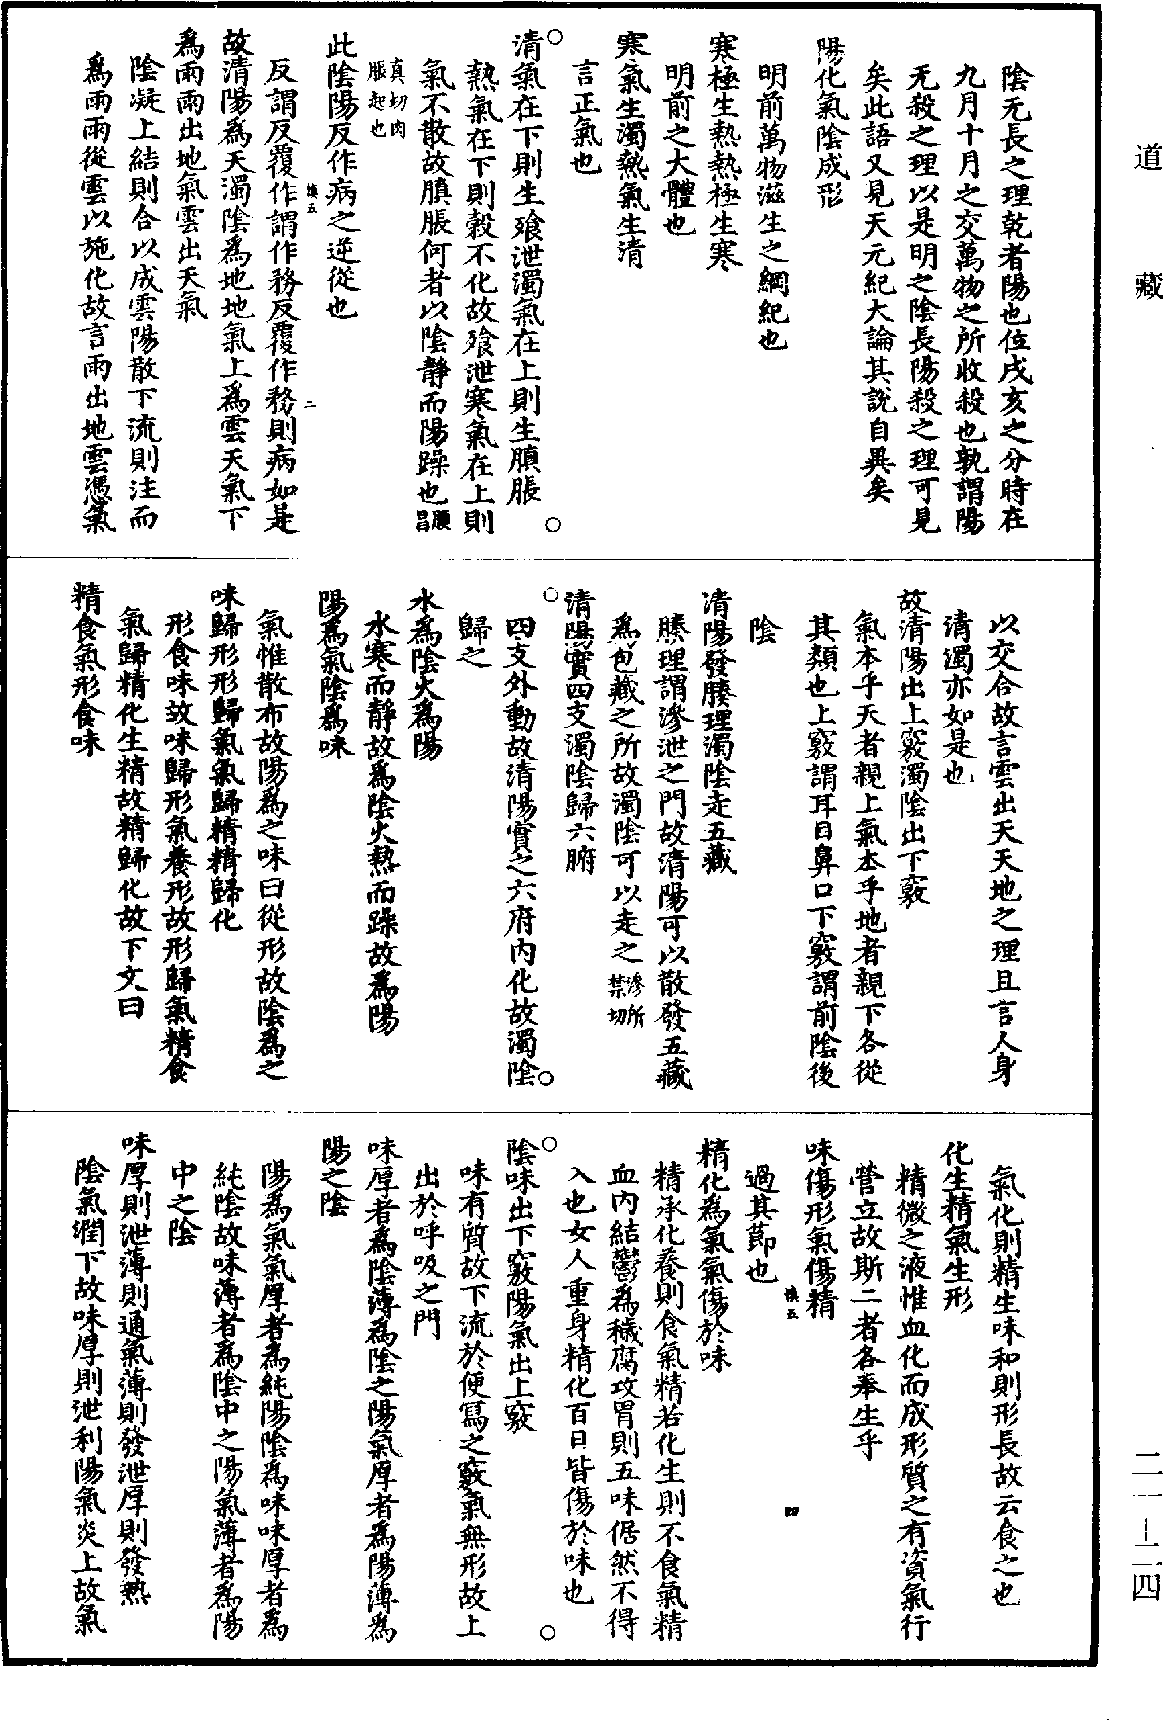 道藏
陰无長之理乾者陽也位戌亥之分時在
九月十月之交萬物之所收殺也孰謂陽
无殺之理以是明之陰長陽殺之理可見
矣此語又見天元紀大論其說自異矣
陽化氣陰成形
明前萬物滋生之綱紀也
寒極生熱熱極生寒
明前之大體也
寒氣生濁熱氣生清
言正氣也
清氣在下則生飱泄濁氣在上則生䐜脹
熱氣在下則穀不化故飱泄寒氣在上則
氣不散故䐜脹何者以陰靜而陽躁也䐜昌
真切肉
脹起也
此陰陽反作病之逆從也
反謂反覆作謂作務反覆作務則病如是
慎五 二
故清陽為天濁陰為地地氣上為雲天氣下
為雨雨出地氣雲出天氣
陰凝上結則合以成雲陽散下流則注而
為雨雨從雲以施化故言雨出地雲憑氣
以交合故言雲出天天地之理且言人身
清濁亦如是也
故清陽出上竅濁陰出下竅
氣本乎天者親上氣本乎地者親下各從
其類也上竅謂耳目鼻口下竅謂前陰後
陰
清陽發腠理濁陰走五藏
腠理謂滲泄之門故清陽可以散發五藏
為包藏之所故濁陰可以走之滲所
禁切
清陽實四支濁陰歸六腑
四支外動故清陽實之六府內化故濁陰
歸之
水為陰火為陽
水寒而靜故為陰火熱而躁故為陽
陽為氣陰為味
氣惟散布故陽為之味曰從形故陰為之
味歸形形歸氣氣歸精精歸化
形食味故味歸形氣養形故形歸氣精食
氣歸精化生精故精歸化故下文曰
精食氣形食味
氣化則精生味和則形長故云食之也
化生精氣生形
精微之液惟血化而成形質之有資氣行
營立故斯二者各奉生乎
味傷形氣傷精
慎五 四
過其節也
精化為氣氣傷於味
精承化養則食氣精若化生則不食氣精
血內結鬱為穢腐攻胃則五味倨然不得
入也女人重身精化百日皆傷於味也
陰味出下竅陽氣出上竅
味有質故下流於便寫之竅氣無形故上
出於呼吸之門
味厚者為陰薄為陰之陽氣厚者為陽薄為
陽之陰
陽為氣氣厚者為純陽陰為味味厚者為
純陰故味薄者為陰中之陽氣薄者為陽
中之陰
味厚則泄薄則通氣薄則發泄厚則發熱
陰氣潤下故味厚則泄利陽氣炎上故氣
二一—二四